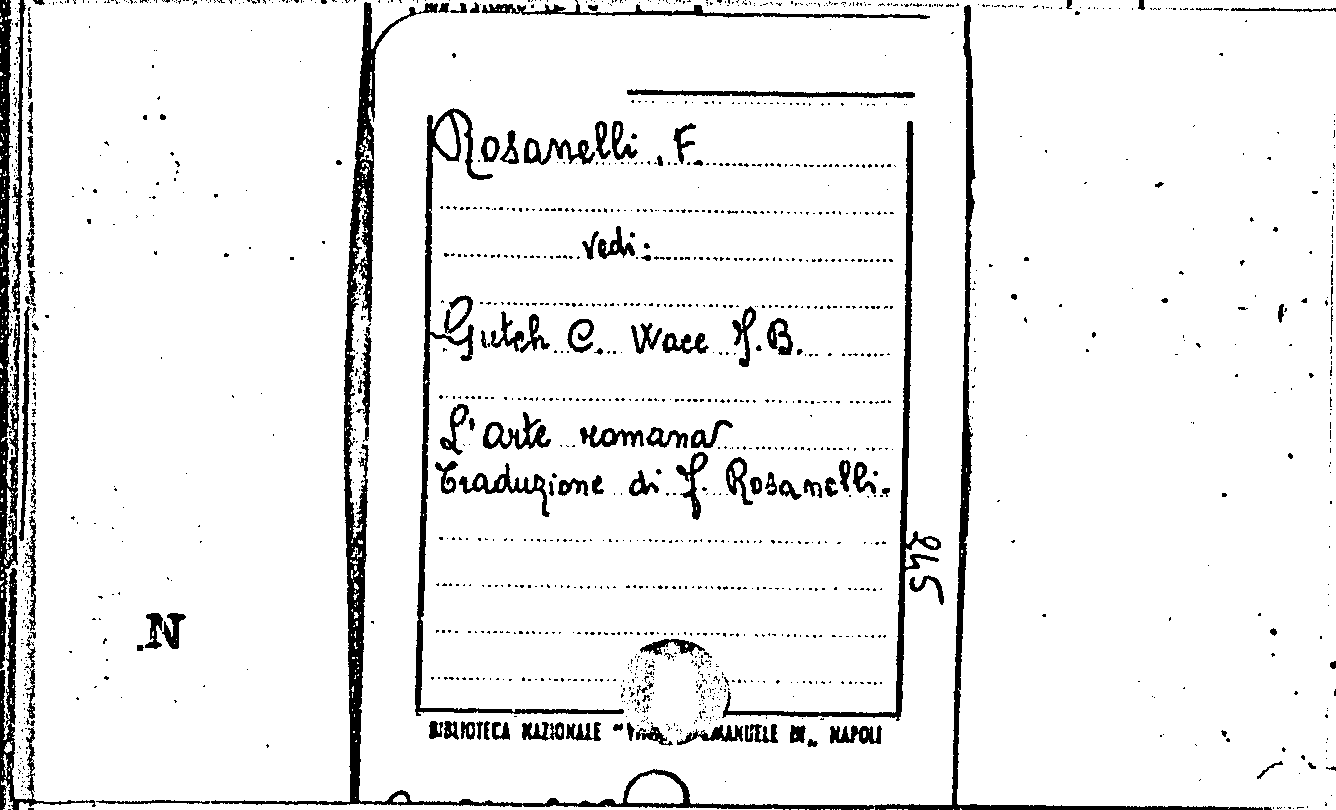 Rosanelli, F.
vedi:
Gutch C. Wace J.B.
L'arte romana
Traduzione di F. Rosanelli.
545
BIBLIOTECA NAZIONALE " EMANUELE III„ NAPOLI
N.